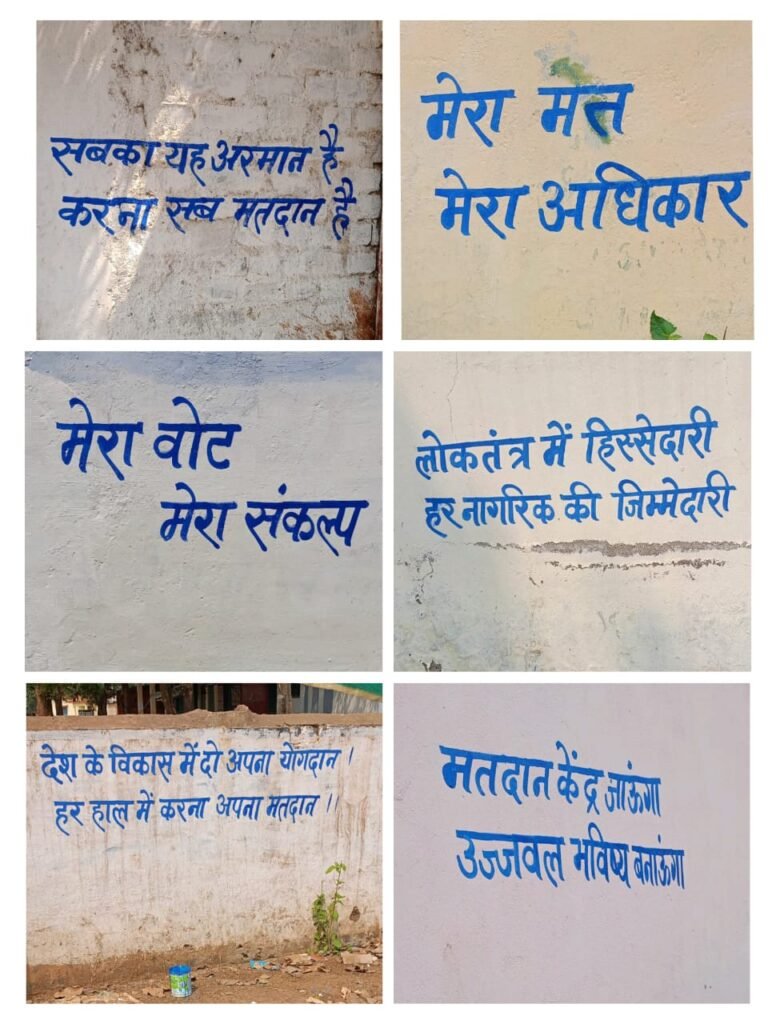 सबका यह अरमान है
करना सब मतदान है
मेरा मत
मेरा अधिकार
मेरा वोट
मेरा संकल्प
लोकतंत्र में हिस्सेदारी
हर नागरिक की जिम्मेदारी
देश के विकास में दो अपना योगदान।
हर हाल में करना अपना मतदान।।
मतदान केंद्र जाऊंगा
उज्जवल भविष्य बनाऊंगा